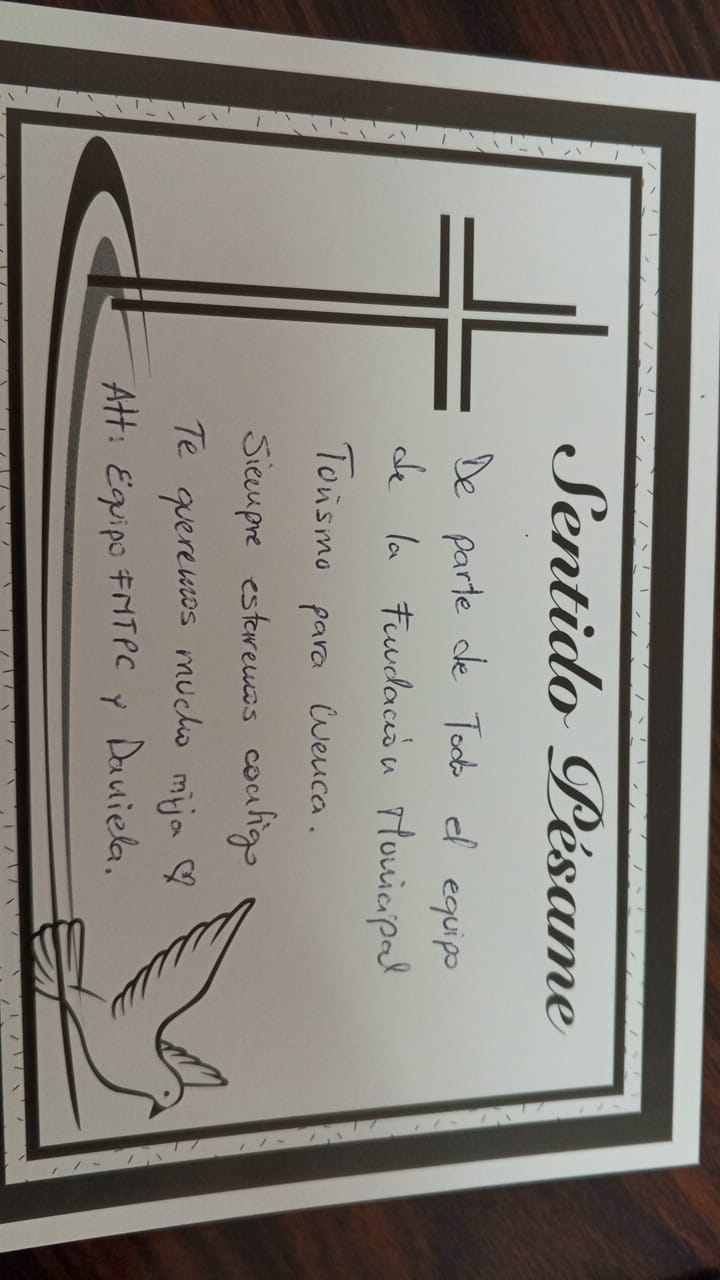 Sentido Pésame
De parte de Todo el equipo
de la Fundación Municipal
Turismo para Cuenca.
Siempre estaremos contigo
Te queremos mucho mija ♡
Att: Equipo FMTPC y Daniela.